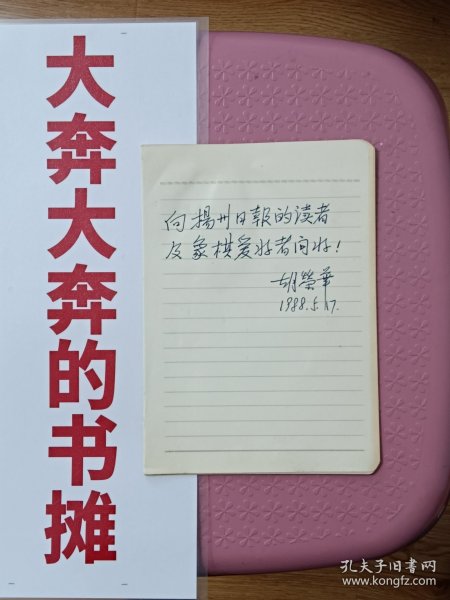 大奔大奔的书摊
向揚州日報的读者
及象棋爱好者问好！
胡榮華
1988.5.17.
孔夫子旧书网
www.kongfz.com